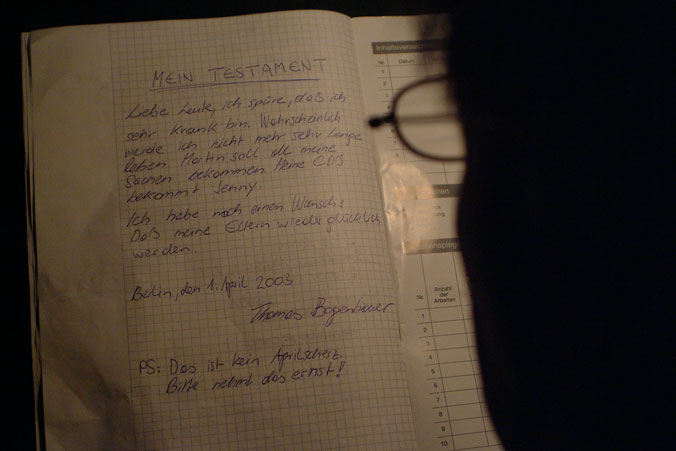 MEIN TESTAMENT
Liebe Leute, ich spüre, daß ich
sehr krank bin. Wahrscheinlich
werde ich nicht mehr sehr lange
leben. Martin soll all meine
Sachen bekommen. Meine CDs
bekommt Jenny.
Ich habe noch einen Wunsch:
Daß meine Eltern wieder glücklich
werden.
Berlin, den 1. April 2003
Thomas Bogenbauer
PS: Das ist kein Aprilscherz.
Bitte nehmt das ernst!
Inhaltsverzeichnis
Nr. Datum
1
2
Nr. Anzahl der Arbeiten
1
2
3
4
5
6
7
8
9
10